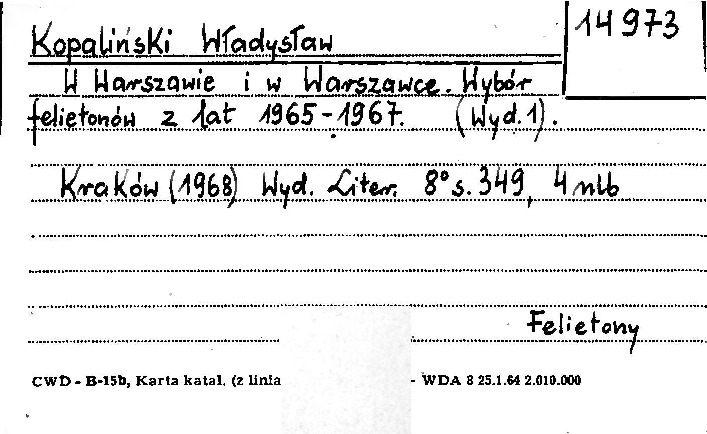 14973
Kopaliński Władysław
W Warszawie i w Warszawce. Wybór
felietonów z lat 1965-1967. (Wyd. 1).
Kraków (1968) Wyd. Liter. 8° s. 349, 4 nlb
Felietony
CWD - B-15b, Karta katal. (z linia - WDA 8 25.1.64 2.010.000